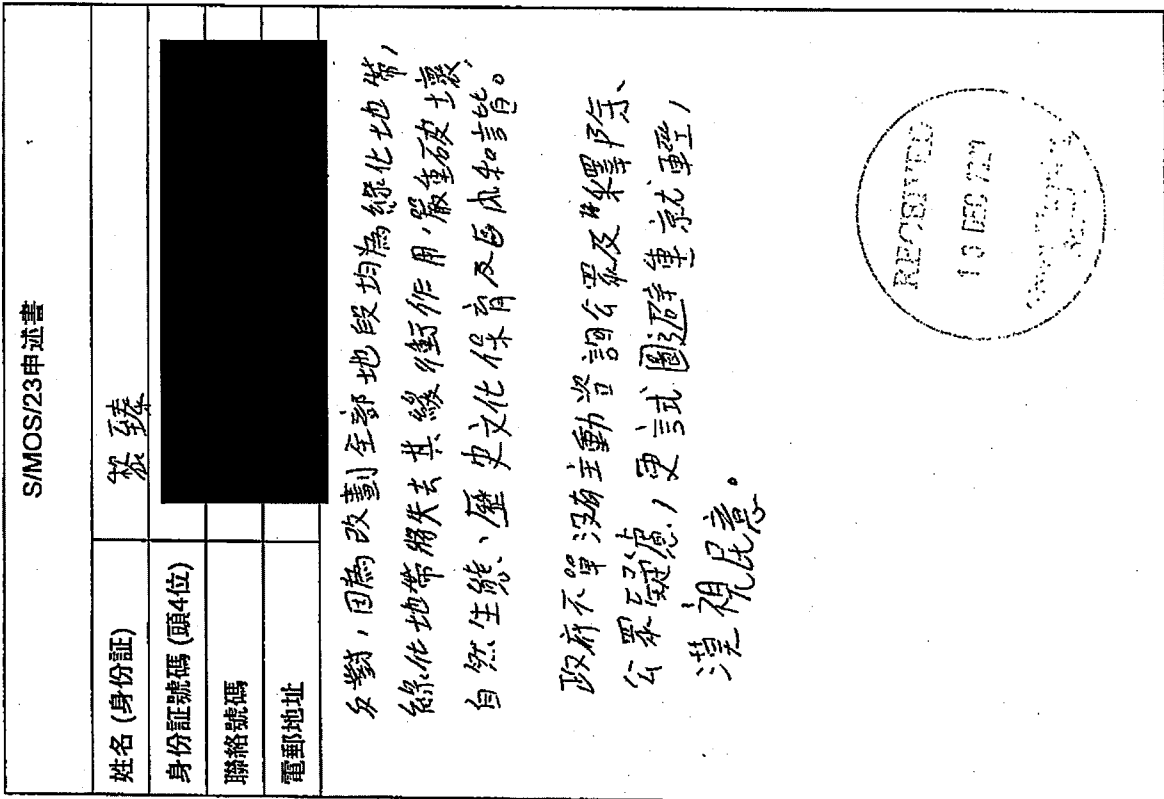 S/MOS/23申述書
姓名 (身份証)
身份証號碼 (頭4位)
聯絡號碼
電郵地址
反對，因為改劃全部地段均為綠化地帶，
綠化地帶將失去其緩衝作用，嚴重破壞
自然生態、歷史文化保育及區內和諧。
政府不單沒有主動諮詢公眾及釋除
公眾疑慮，更試圖避重就輕，
漠視民意。
RECEIVED
13 DEC